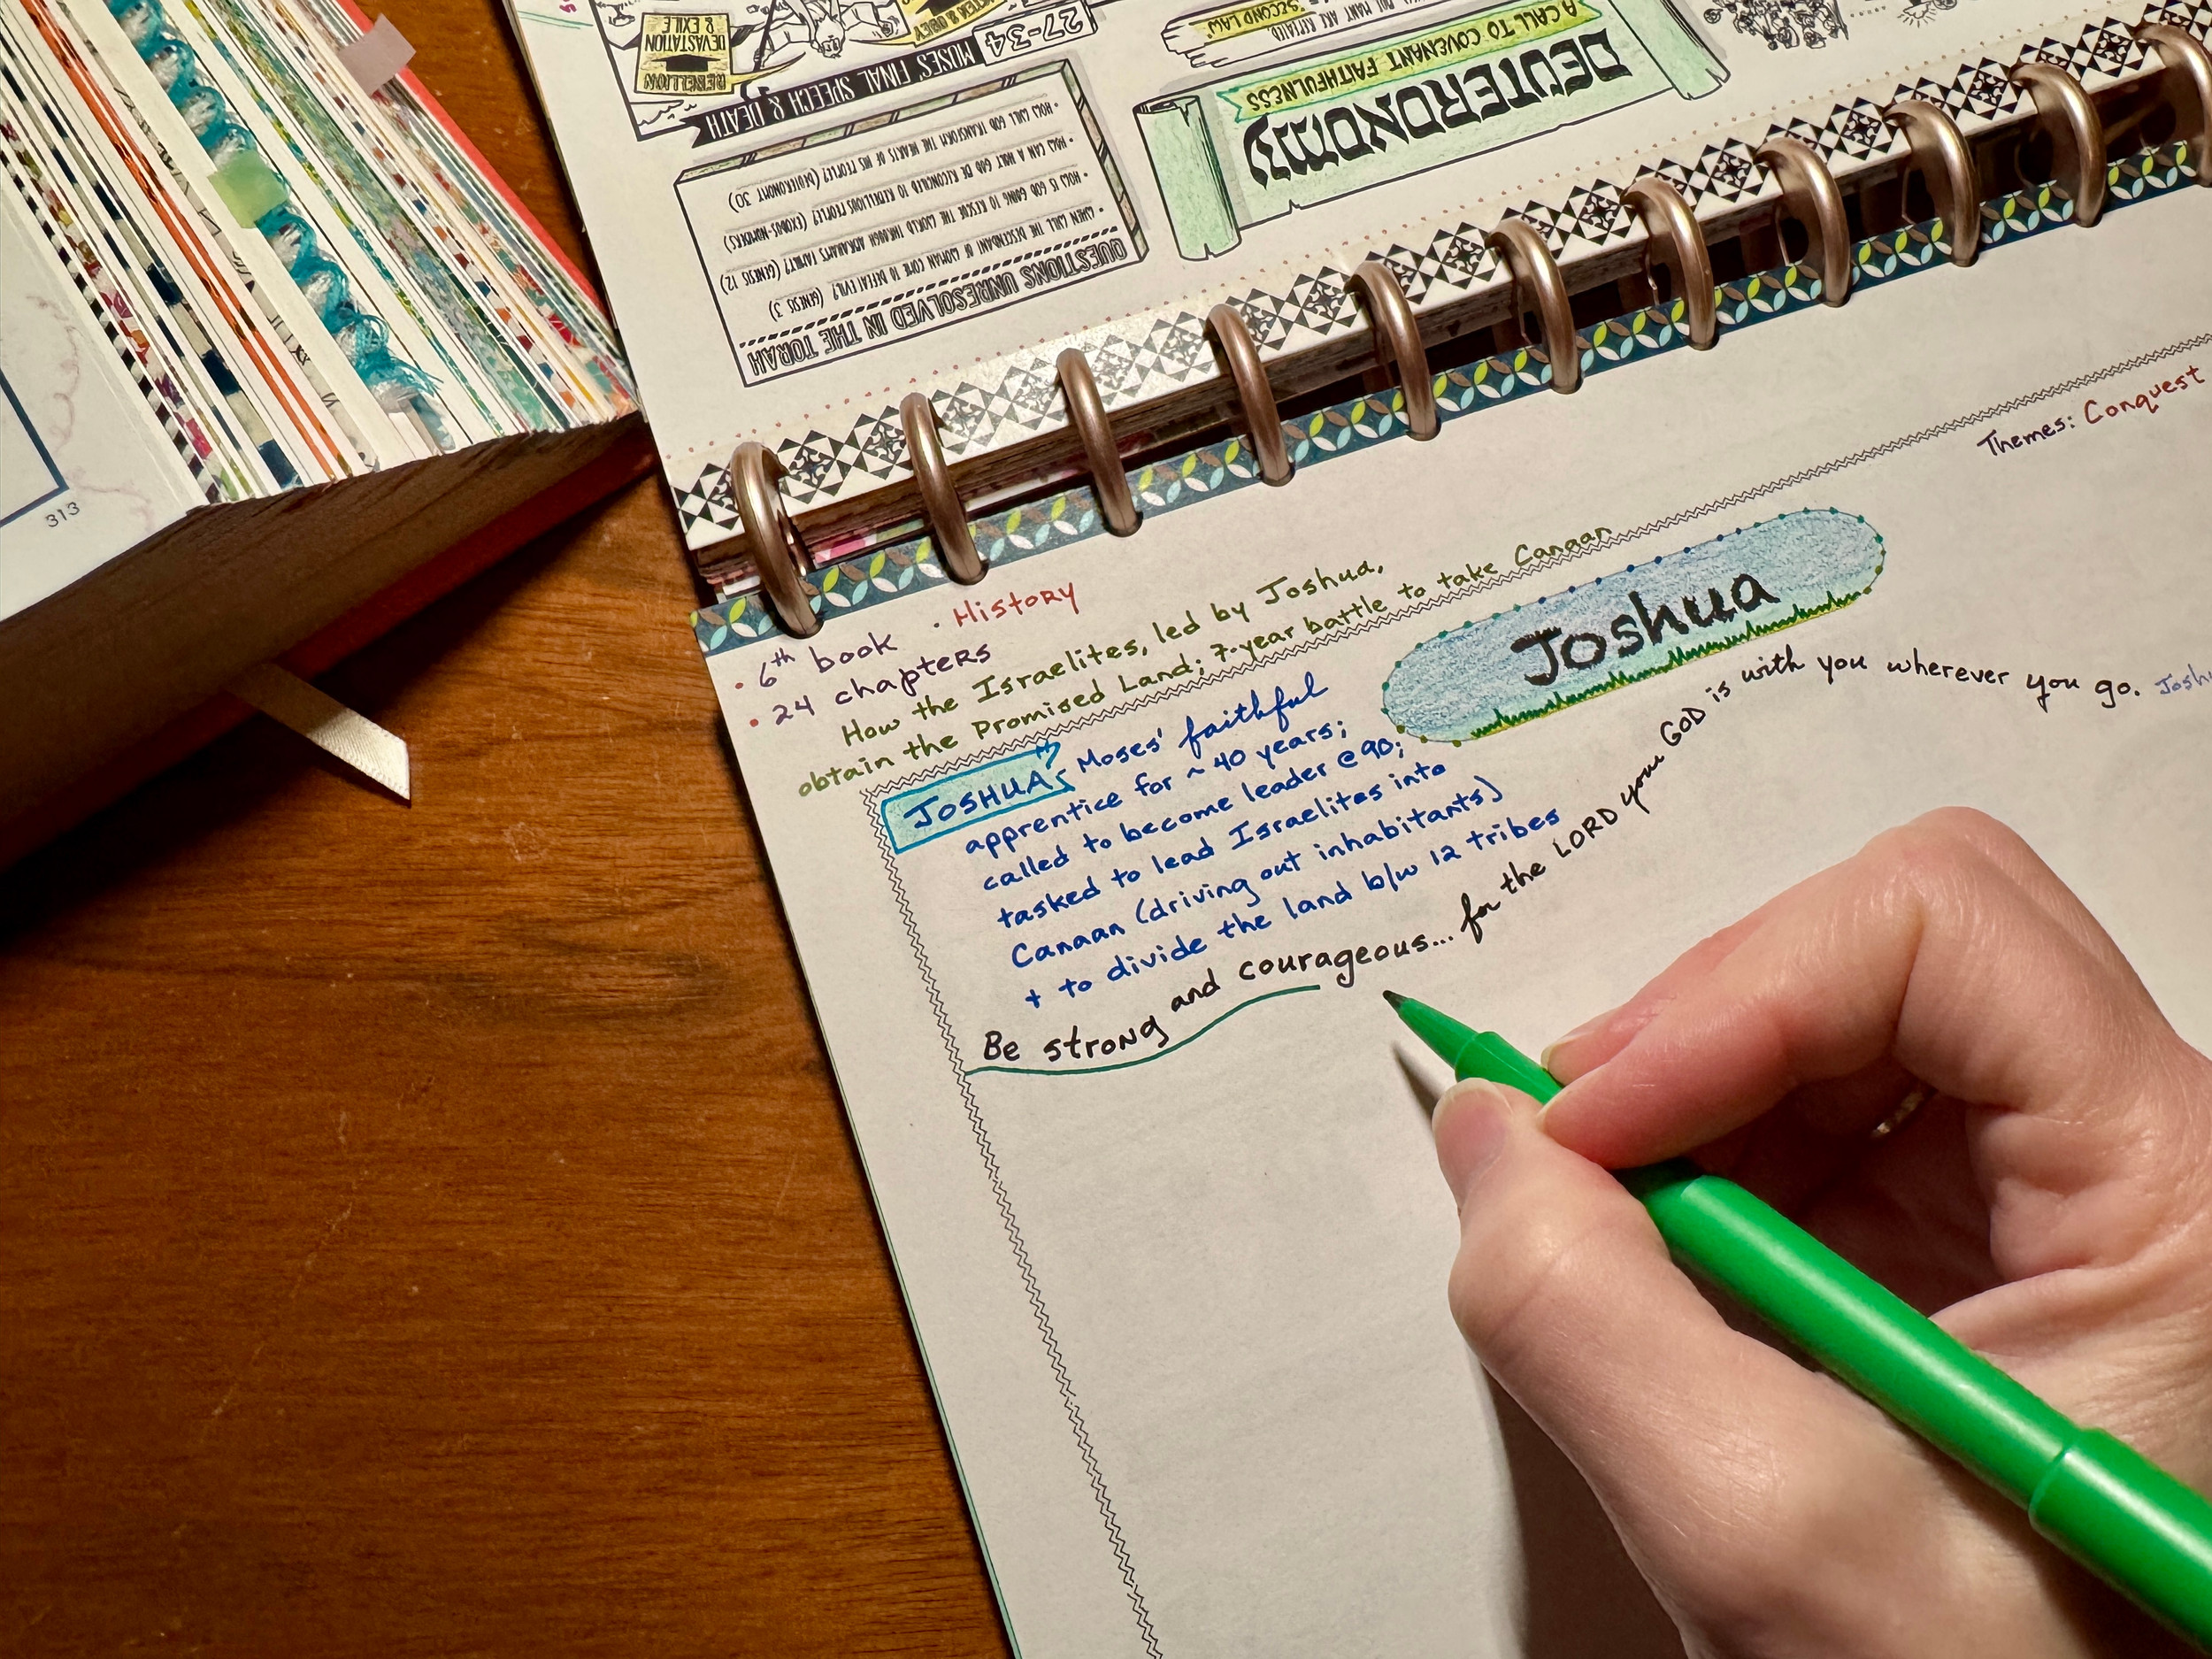 DEVASTATION & EXILE
REBELLION
27-34
MOSES' FINAL SPEECH & DEATH
"SECOND LAW"
DEUTERONOMY
A CALL TO COVENANT FAITHFULNESS
QUESTIONS UNRESOLVED IN THE TORAH
• WHEN WILL THE DESCENDANT OF WOMAN COME TO DEFEAT EVIL? (GENESIS 3)
• HOW IS GOD GOING TO RESCUE THE WORLD THROUGH ABRAHAM'S FAMILY? (GENESIS 12)
• HOW CAN A HOLY GOD BE RECONCILED TO REBELLIOUS PEOPLE? (EXODUS-NUMBERS)
• HOW WILL GOD TRANSFORM THE HEARTS OF HIS PEOPLE? (DEUTERONOMY 30)
313
Themes: Conquest
• 6th book • History
• 24 chapters
How the Israelites, led by Joshua,
obtain the Promised Land; 7-year battle to take Canaan
Joshua
JOSHUA: Moses' faithful
apprentice for ~ 40 years;
called to become leader @ 90;
tasked to lead Israelites into
Canaan (driving out inhabitants)
+ to divide the land b/w 12 tribes
Be strong and courageous... for the LORD your GOD is with you wherever you go.